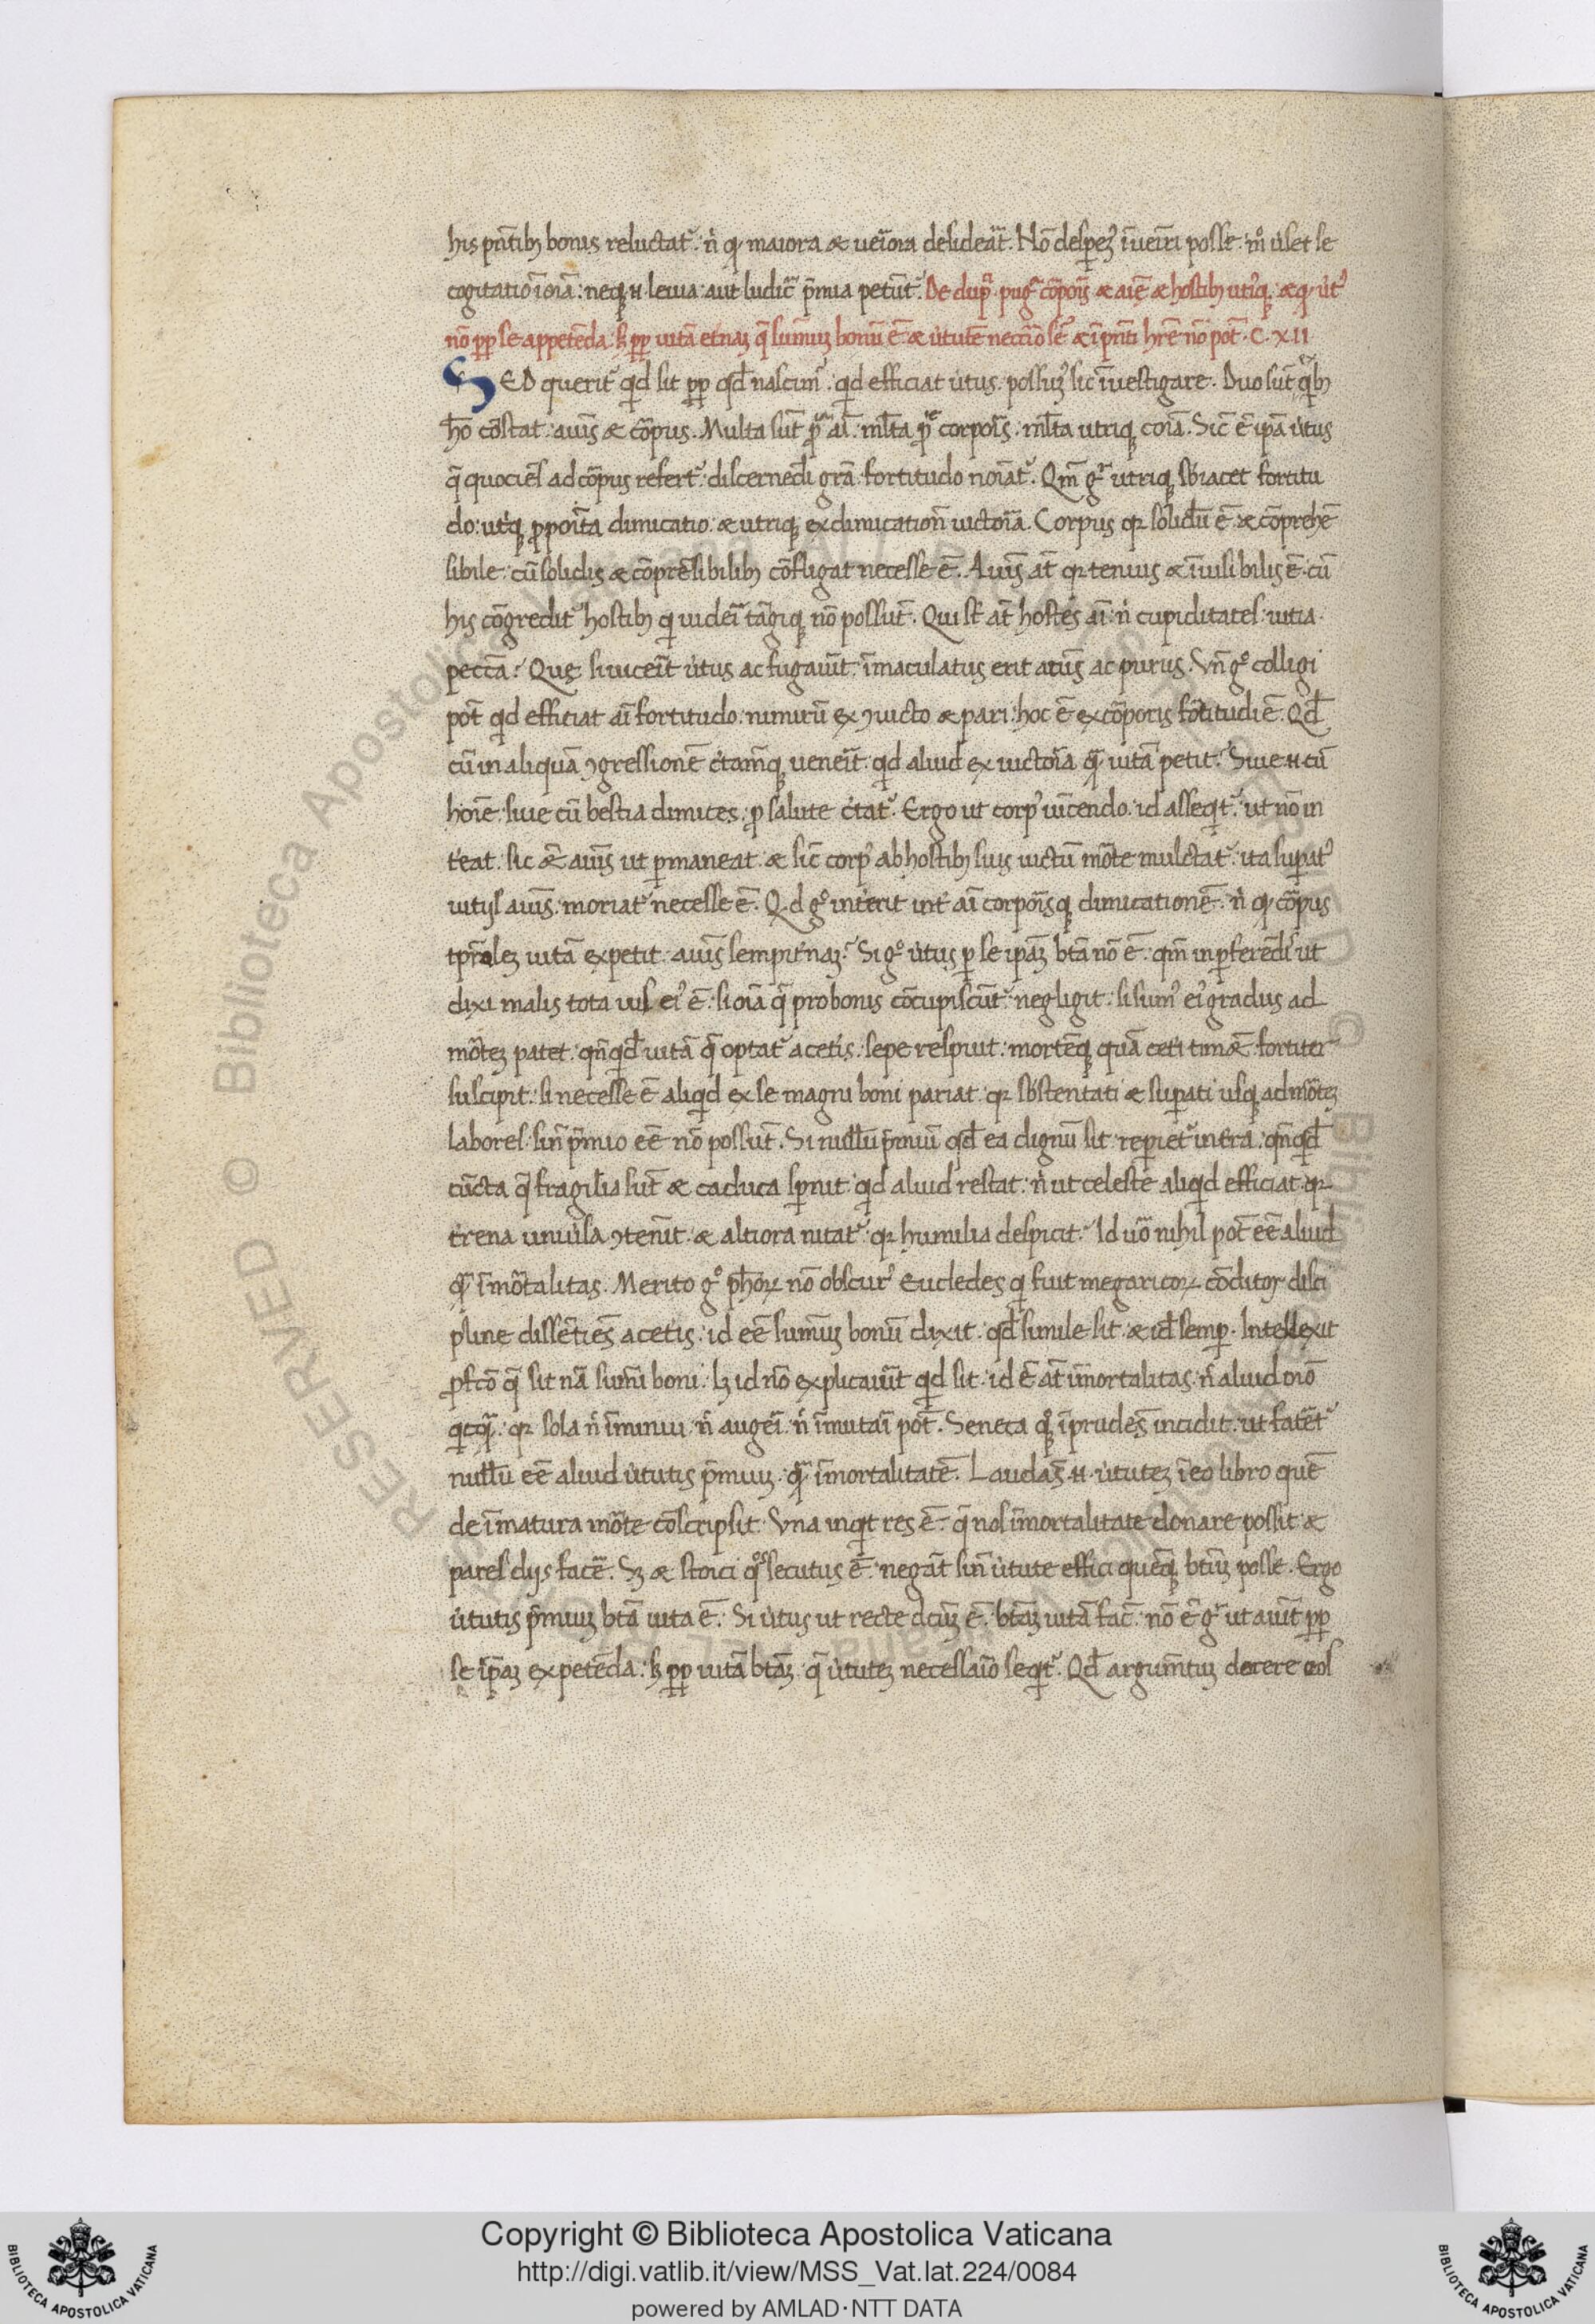 his p̄ntib; bonis reluctat᷒. n̍ q̍ maiora ⁊ uec̄iora desideāt. Nō desperē īueīri posse. mō uerset se
cogitatio ī oīa: neq; .n. leuia aut ludic̄ p̄mia petūt᷒. De dup̄. pug̃ cōpoīs ⁊ aīe ⁊ hostib; utriq;. ⁊ q̍ ụ̍t᷒
nō pp̄ se appetēda. s; pp̄ uitā et̄naʒ q̄ sum̄uʒ bonū ē. ⁊ u̍tutē neccīo seq̄ ⁊ ī p̄nti hr̄e nō pōt. C. XII
SED querit᷒ qd̍ sit pp̄ qd̄ nascim᷒. qd̍ efficiat u̍tus. possum᷒ sic īuestigare. Duo sūt ex q̍b;
hō cōstat. aīus ⁊ cōpus. Multa sūt p̱pa aī. ml̄ta p̱pe corpoīs. ml̄ta utriq; coīa. Sic̄ ē ip̄a u̍tus
q̄ quociēs ad cōpus refert᷒. discernēdi grā fortitudo noīat᷒. Qm̄ g᷒ utriq; sb̄iacet fortitu
do: utq̍; p̱poīta dimicatio: ⁊ utriq; ex dimicatioñ uictoīa. Corpus qr solidū ē ⁊ cōprehē
sibile. cū solidis ⁊ cōprēsibilib; cōfligat necesse ē. Aīus āt qr tenuis ⁊ īuisibilis ē. cū
his cōgredit᷒ hostib; q̍ uideī tāgiq; nō possūt. Qui st̄ āt hostes aī. n̍ cupiditates. uitia.
peccā? Quę si uiceīt u̍tus ac fugauīt. īmaculatus erit aīus ac purus. Vn̄ g° colligi
pōt qd̍ efficiat aī fortitudo. nimirū ex ꝯiucto ⁊ pari. hoc ē ex cōporis fōtitudīe. Qd̄
cū in aliquā ꝯgressionē c̍tam̄q; ueneīt. qd̍ aliud ex uictoīa q̄ uitā petit? Siue .n. cū
hoīe. siue cū bestia dimices. p̱ salute c̍tat᷒. Ergo ut corp᷒ uīcendo. id asseq̍t᷒. ut nō in
t̍eat. sic ēt aīus ut ꝑmaneat. ⁊ sic̄ corp᷒ ab hostib; suis uictū mōte mulctat᷒. ita suꝑat᷒
uitijs aīus. moriat᷒ necesse ē. Qd g° int̍erit int̍ aī corpoīsq; dimicationē. n̍ q̍ cōpus
tp̄raleʒ uitā expetit. aīus sempit̍naʒ? Si g° u̍tus ꝑ se ip̄aʒ btā nō ē. qm̄ in ꝑferēdis ut
dixi malis tota uis ei᷒ ē. si oīa q̄ pro bonis cōcupiscūt᷒. negligit. si sum᷒ ei᷒ gradus ad
mōteʒ patet. qn̄qd̄ uitā q̄ optat᷒ a cet̍is. sepe respuit. mortēq; quā cet̍i timēt fortiter
suscipit. si necesse ē aliqd̍ ex se magni boni pariat. qr sb̄stentati ⁊ suꝑati usq; ad mōteʒ
labores sin̄ p̄mio eē nō possūt. Si nullū p̄miū qd̄ ea dignū sit reꝑiet᷒ in t̍ra. qn̄qd̄
cūcta q̄ fragilia sūt ⁊ caduca sꝑnit. qd̍ aliud restat. n̍ ut celeste aliqd̍ efficiat. qr
t̍rena uniu̍sa ꝯtēnit. ⁊ altiora nitat᷒. qr humilia despicit? Id uō nihil pōt eē aliud
q̄ īmōtalitas. Merito g° ph̄oꝝ nō obscur᷒ Eucledes q̍ fuit megaricoꝝ cōditor disci
pline dissētiēs a cet̍is. id eē sum̄uʒ bonū dixit. qd̄ simile sit. ⁊ id̄ semꝑ. Intellexit
p̱fcō q̄ sit nā sum̄i boni. lʒ id nō explicauīt qd̍ sit. id ē āt īmortalitas. n̍ aliud oīo
q̍cq̄. qr sola n̍ īminui. n̍ augeī. n̍ īmutaī pōt. Seneca q°q; īprudēs incidit. ut fatēt᷒
nullū eē aliud u̍tutis p̄miuʒ. q̄ īmortalitatē. Laudās .n. u̍tuteʒ ī eo libro quē
de īmatura mōte cōscripsit. Vna inq̍t res ē. q̄ nos īmortalitate donare possit ⁊
pares dijs facē. Sʒ ⁊ stoici q°s secutus ē. negāt sin̄ u̍tute effici quēq; btūʒ posse. Ergo
u̍tutis p̄miuʒ btā uita ē. Si u̍tus ut recte dcūʒ ē. btāʒ uitā fac̄. nō ē g᷒ ut aiūt pp̄
se ip̄aʒ expetēda. s; pp̄ uitā btāʒ. q̄ u̍tuteʒ necessaīo seq̍t᷒. Qd̄ argum̄tuʒ docere eos
Copyright © Biblioteca Apostolica Vaticana
http://digi.vatlib.it/view/MSS_Vat.lat.224/0084
powered by AMLAD·NTT DATA